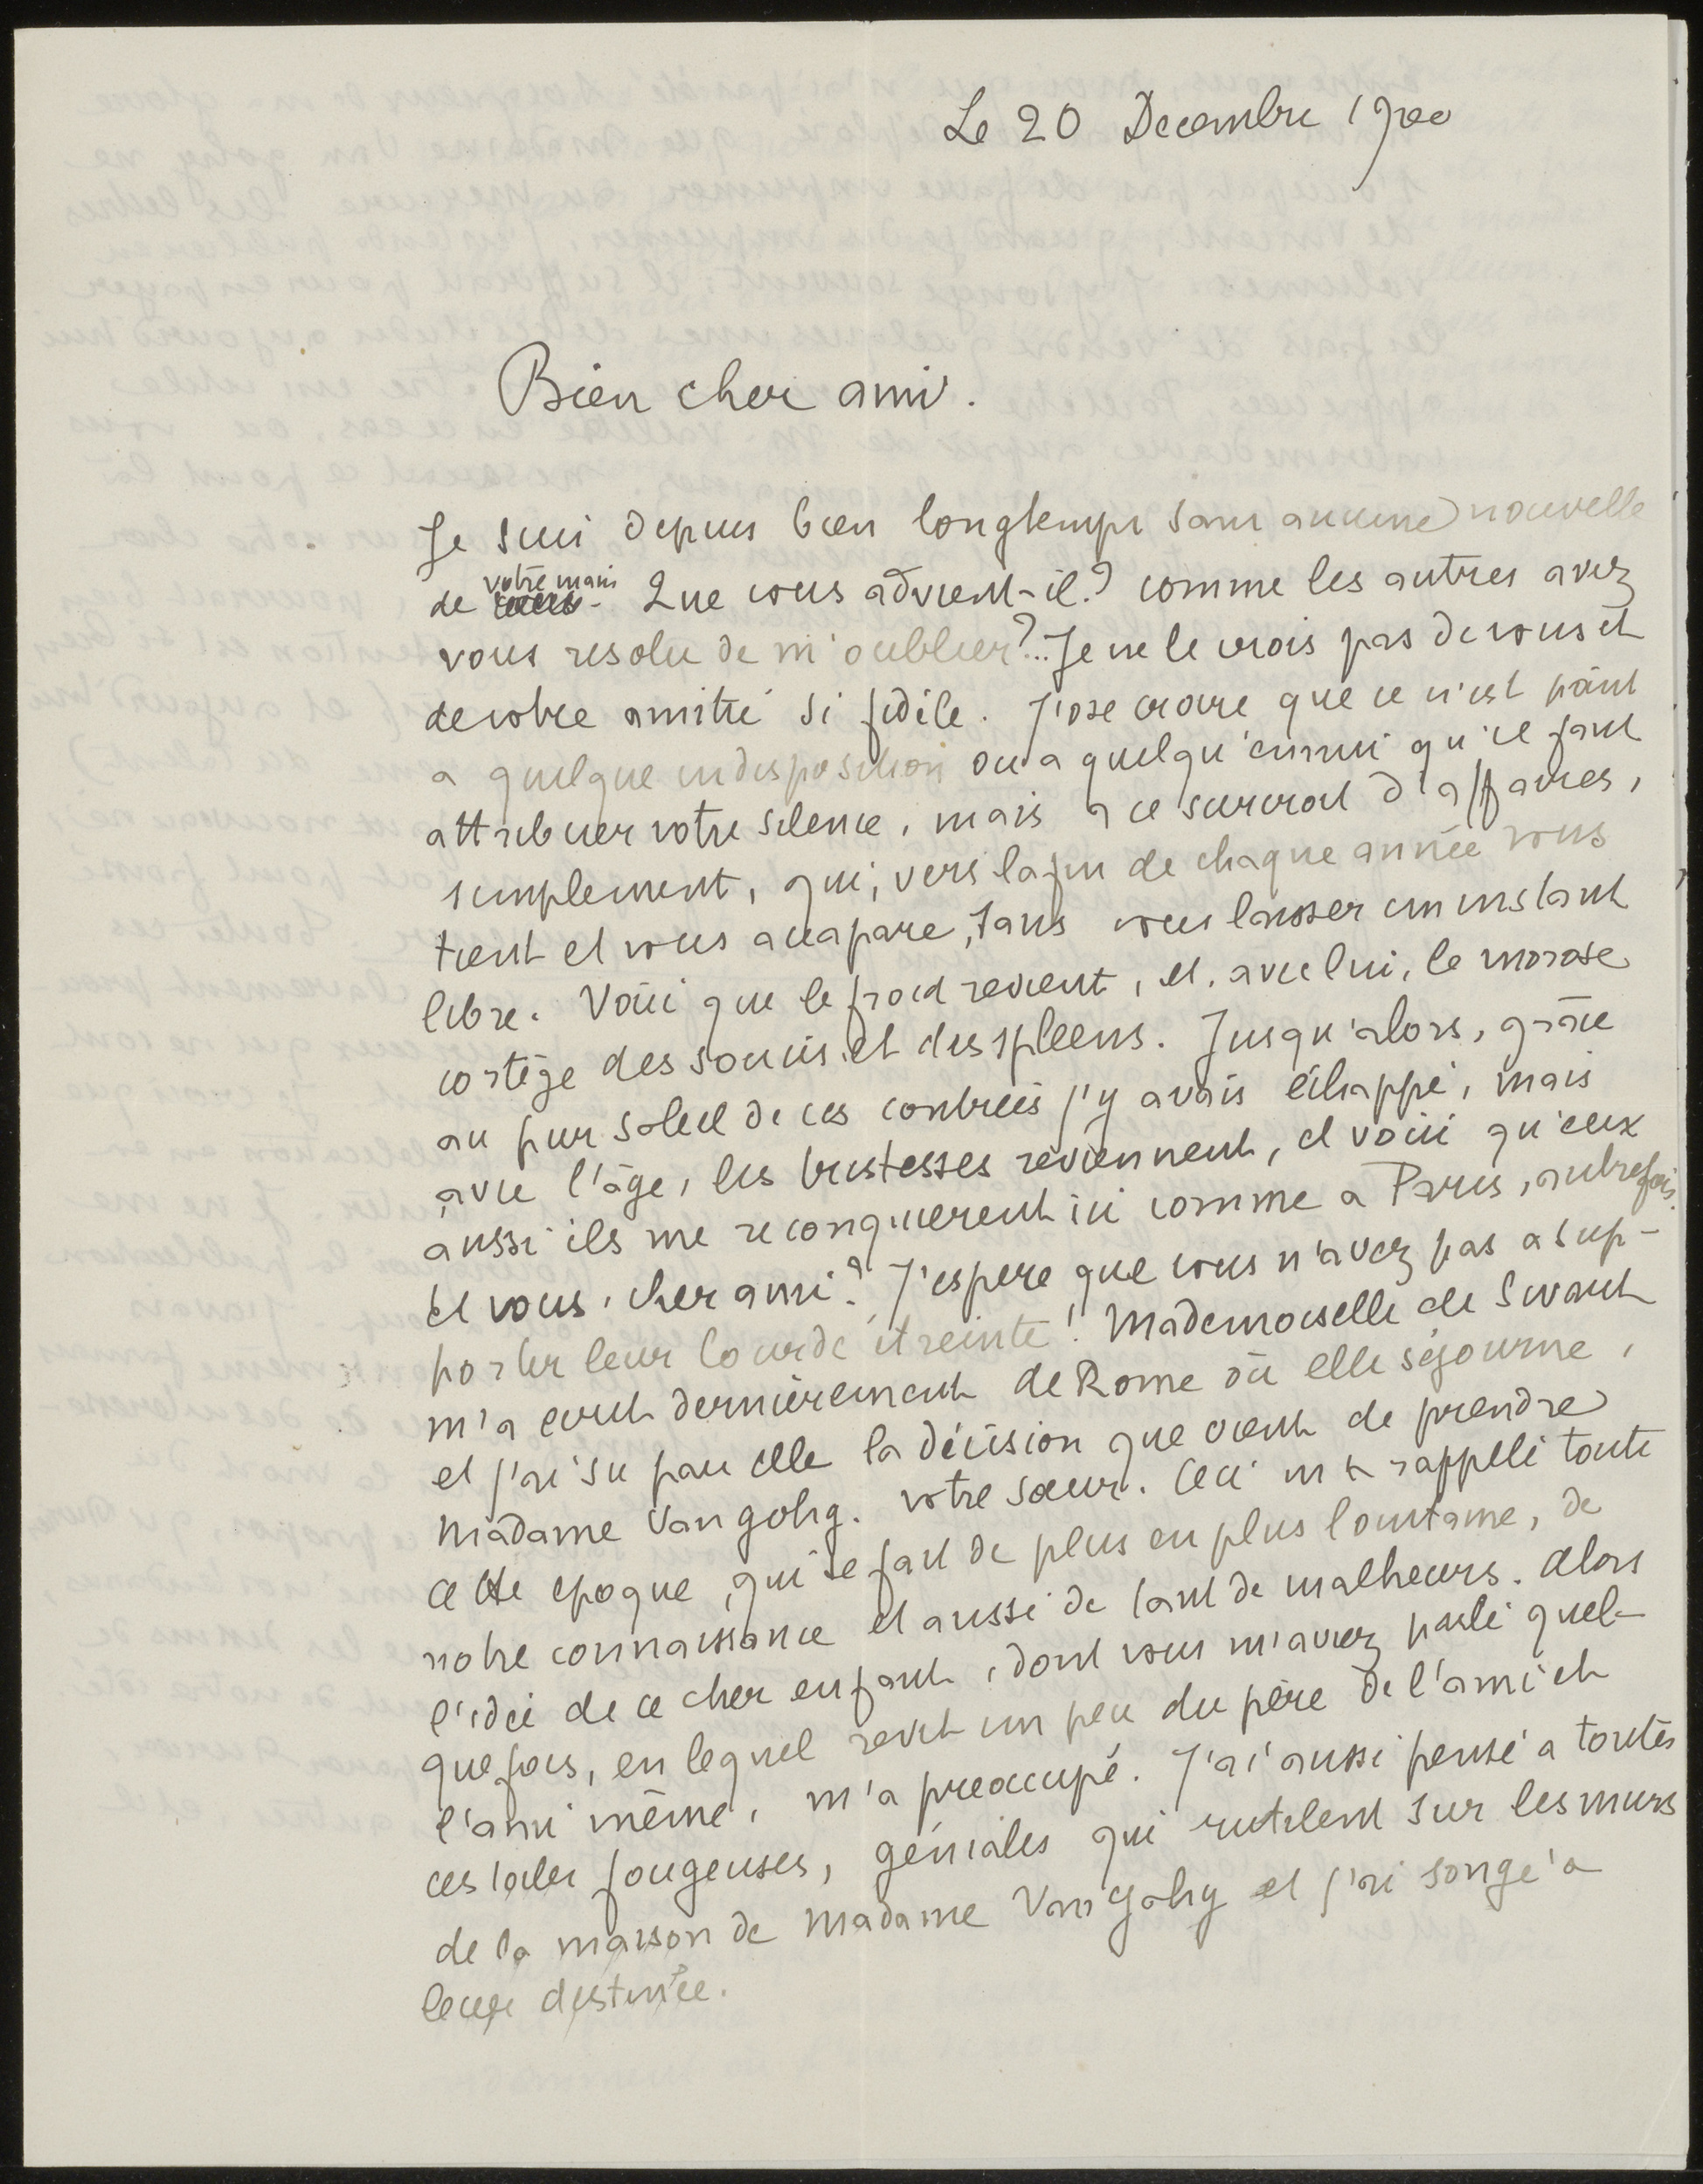 Le 20 Decembre 1900
Bien cher ami.
Je suis depuis bien longtemps sans aucune nouvelle
de votre main. Que vous advient-il? comme les autres avez
vous resolu de m'oublier?... Je ne le crois pas de vous et
de votre amitié si fidèle. J'ose croire que ce n'est point
a quelque indisposition ou a quelqu'ennui qu'il faut
attribuer votre silence, mais a ce surcroit d'affaires,
simplement, qui, vers la fin de chaque année vous
tient et vous accapare, sans vous laisser un instant
libre. Voici que le froid revient, et, avec lui, le morose
cortège des soucis et des spleens. Jusqu'alors, grâce
au pur soleil de ces contrées j'y avais échappé, mais
avec l'âge, les tristesses reviennent, et voici qu'eux
aussi ils me reconquierent ici comme a Paris, autrefois.
Et vous, cher ami? J'espere que vous n'avez pas a sup-
porter leur lourde étreinte! Mademoiselle de Sivant
m'a ecrit dernièrement de Rome où elle séjourne,
et j'ai su par elle la décision que vient de prendre
Madame Van Gohg. votre sœur. Ceci m'a rappelé toute
cette epoque, qui se fait de plus en plus lointaine, de
notre connaissance et aussi de tant de malheurs. Alors
l'idée de ce cher enfant, dont vous m'aviez parlé quel-
quefois, en lequel revit un peu du père de l'ami et
l'ami même, m'a preoccupé. J'ai aussi pensé a toutes
ces toiles fougeuses, géniales qui rutilent sur les murs
de la maison de Madame Van Gohg et j'ai songé a
leur destinée.